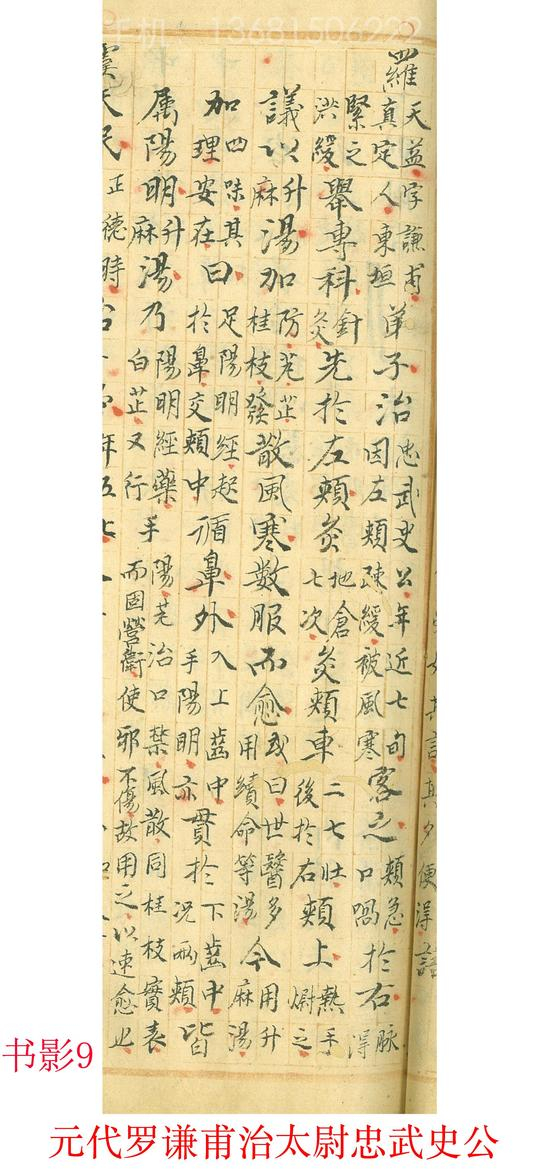 手机：13681506222
羅天益字謙甫真定人東垣弟子治忠武史公年近七旬因左頰疎緩被風寒客之頰急口喎於右脈得
緊之洪緩舉專科針灸先於左頰灸地倉七次灸頰車二七壯後於右頰上熱手熨之
議以升麻湯加防芪芷桂枝發散風寒數服而愈或曰世醫多用續命等湯今用升麻湯
加四味其理安在曰足陽明經起於鼻交頞中循鼻外入上齒中手陽明亦貫於下齒中況兩頰皆
属陽明升麻湯乃陽明經藥白芷又行手陽芪治口禁風散同桂枝實表而固營衛使邪不傷故用之以速愈也
天民正德時
书影9
元代罗谦甫治太尉忠武史公